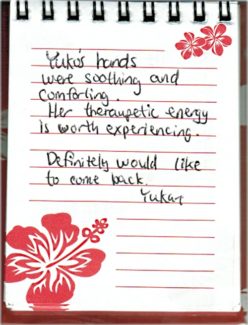 Yuko's hands
were soothing and
comforting.
Her theraupetic energy
is worth experiencing.
Definitely would like
to come back.